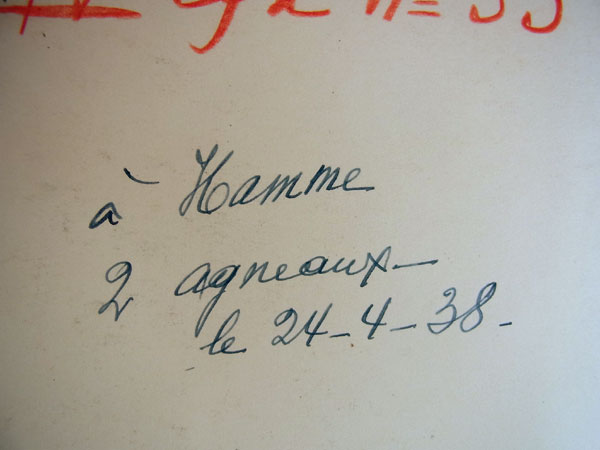 n= 33
à Hamme
2 agneaux_
le 24_4_38_